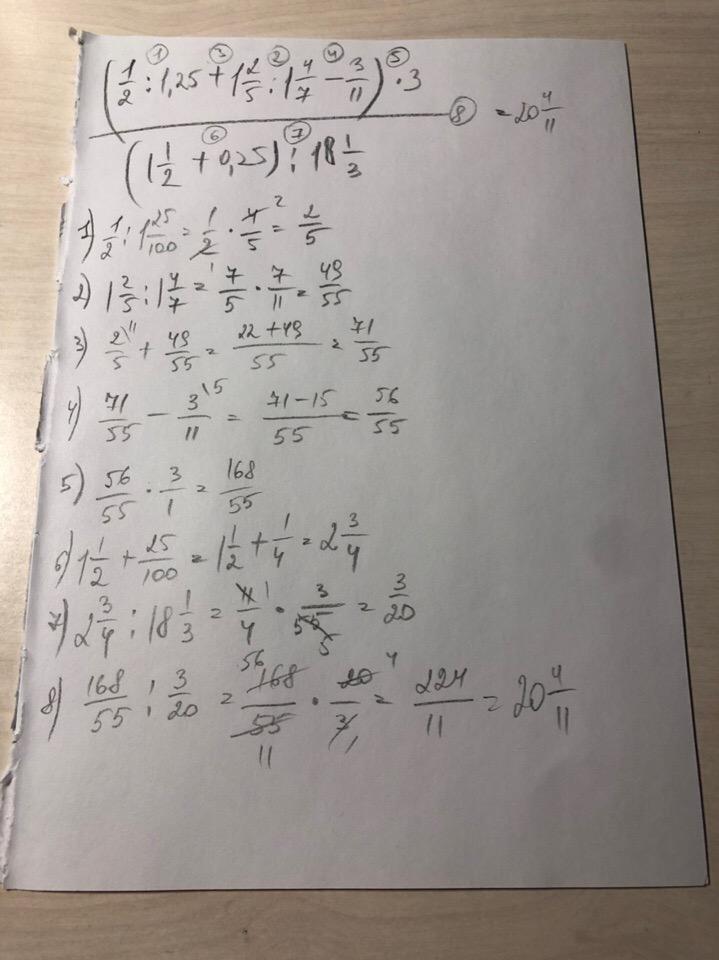 (1/2 : 1,25 + 1 2/5 : 1 4/7 − 3/11) · 3
① ③ ② ④ ⑤
⑧ = 20 4/11
⑥ ⑦
(1 1/2 + 0,25) : 18 1/3
1) 1/2 : 1 25/100 = 1/2 · 4/5 = 2/5
2) 1 2/5 : 1 4/7 = 7/5 · 7/11 = 49/55
3) 2/5 \11 + 49/55 = 22+49/55 = 71/55
4) 71/55 − 3/11 \5 = 71−15/55 = 56/55
5) 56/55 · 3/1 = 168/55
6) 1 1/2 + 25/100 = 1 1/2 + 1/4 = 2 3/4
7) 2 3/4 : 18 1/3 = 11/4 · 3/55 = 3/20
8) 168/55 : 3/20 = 168/55 · 20/3 = 224/11 = 20 4/11